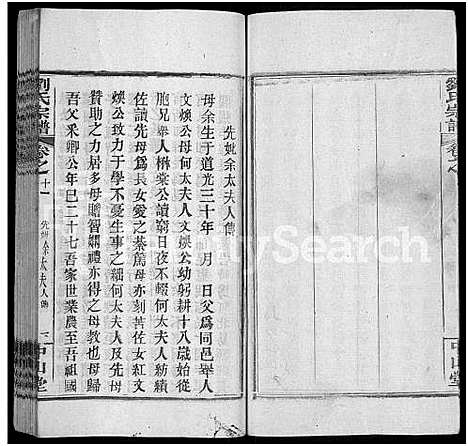 劉氏宗譜
卷之
劉氏宗譜
卷之十一
先妣余太夫人傳
三
中山堂
中山堂
先妣余太夫人傳
母余生于道光三十年 月 日父爲同邑舉人
文煥公母何太夫人文煥公幼躬耕十八歲始從
胞兄舉人楙棠公讀窮日夜不輟何太夫人紡績
佐讀先母爲長女愛之綦篤母亦刻苦佐女紅文
煥公致力于學不憂生事之繦何太夫人及先母
贊助之力居多母贍智嫺禮亦得之母教也母歸
吾父釆卿公年已二十七吾家世業農至吾祖國
MySearch